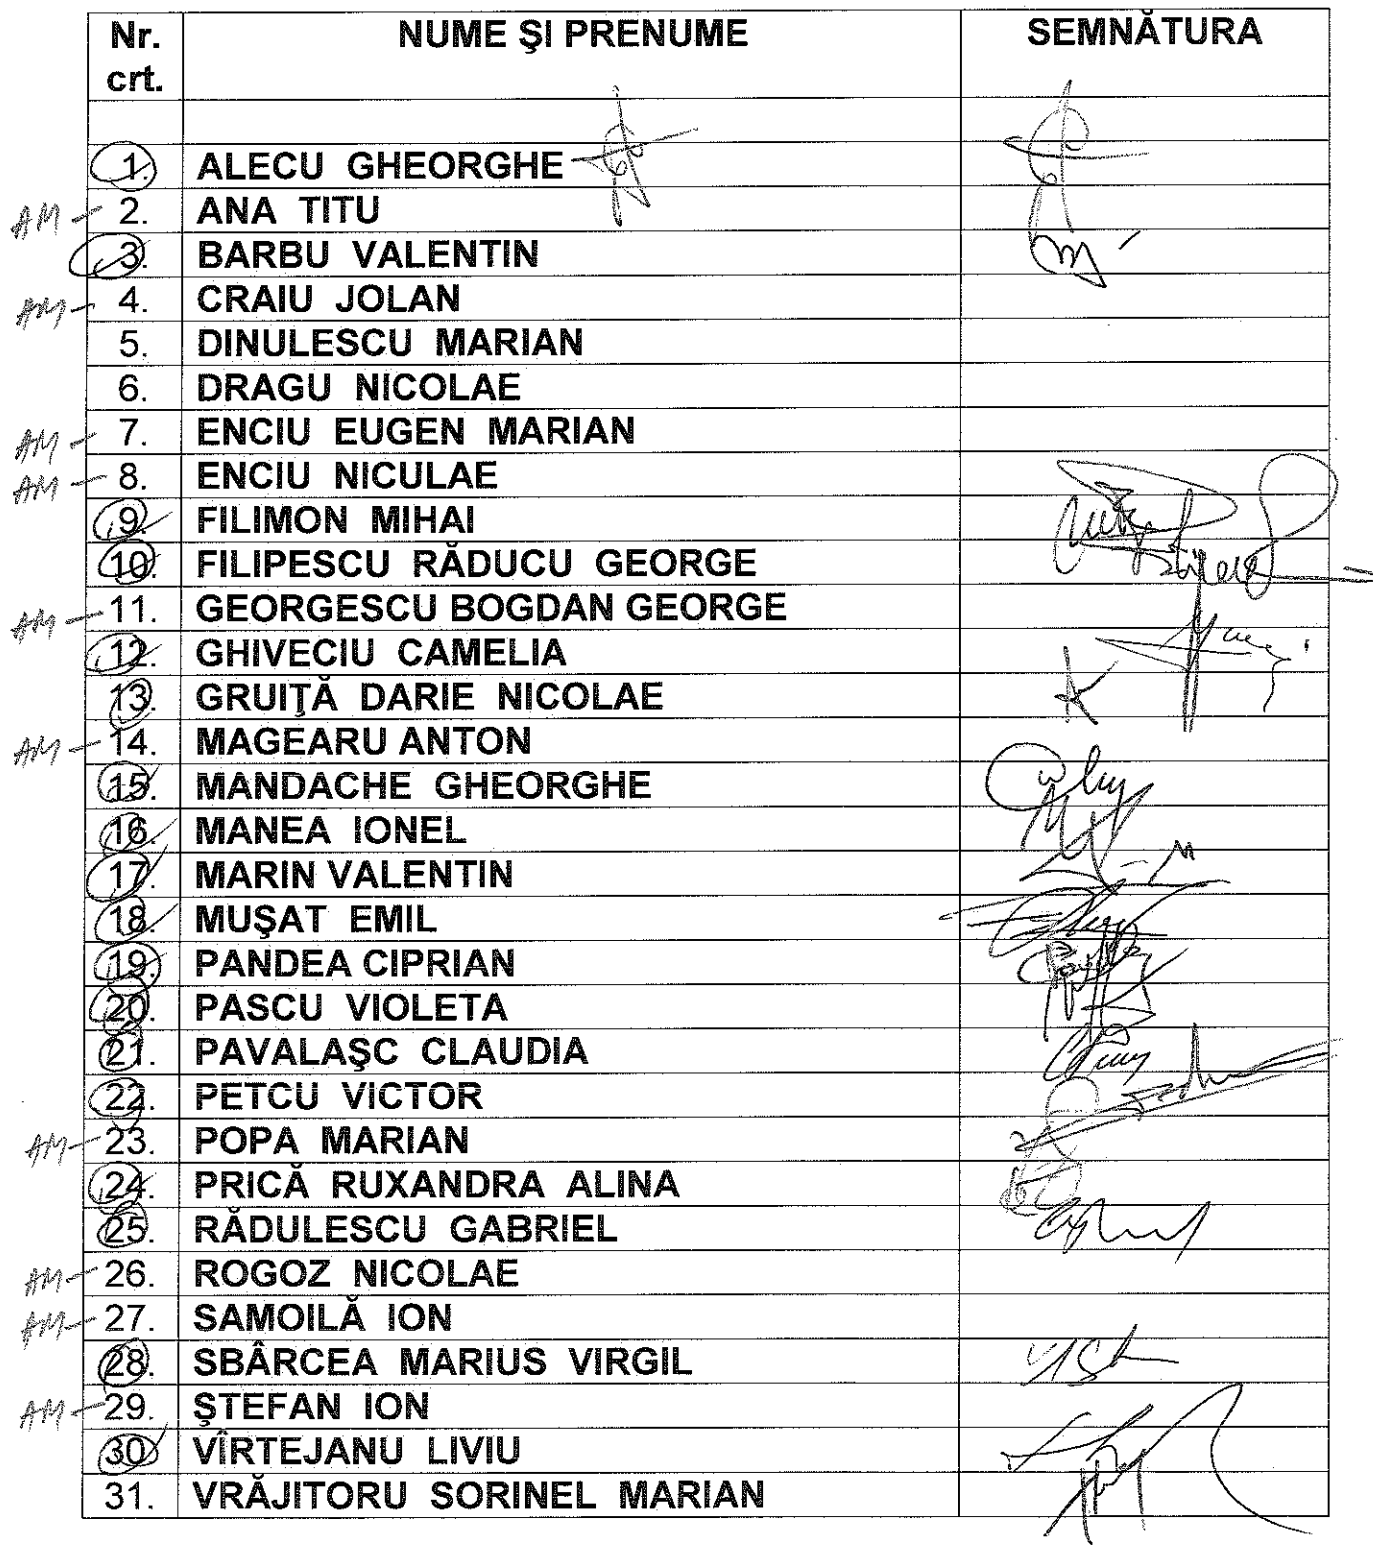 Nr. crt. NUME ŞI PRENUME SEMNĂTURA
1. ALECU GHEORGHE
AM 2. ANA TITU
3. BARBU VALENTIN
AM 4. CRAIU JOLAN
5. DINULESCU MARIAN
6. DRAGU NICOLAE
AM 7. ENCIU EUGEN MARIAN
AM 8. ENCIU NICULAE
9. FILIMON MIHAI
10. FILIPESCU RĂDUCU GEORGE
AM 11. GEORGESCU BOGDAN GEORGE
12. GHIVECIU CAMELIA
13. GRUIŢĂ DARIE NICOLAE
AM 14. MAGEARU ANTON
15. MANDACHE GHEORGHE
16. MANEA IONEL
17. MARIN VALENTIN
18. MUŞAT EMIL
19. PANDEA CIPRIAN
20. PASCU VIOLETA
21. PAVALAŞC CLAUDIA
22. PETCU VICTOR
AM 23. POPA MARIAN
24. PRICĂ RUXANDRA ALINA
25. RĂDULESCU GABRIEL
AM 26. ROGOZ NICOLAE
AM 27. SAMOILĂ ION
28. SBÂRCEA MARIUS VIRGIL
AM 29. ŞTEFAN ION
30. VÎRTEJANU LIVIU
31. VRĂJITORU SORINEL MARIAN